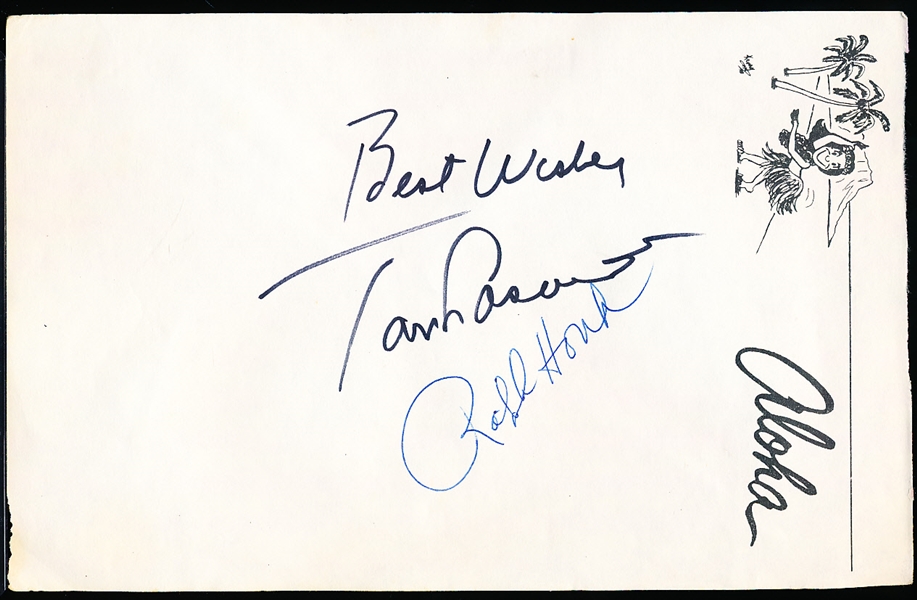 Best Wishes
Tom
Ralph Houk
Aloha